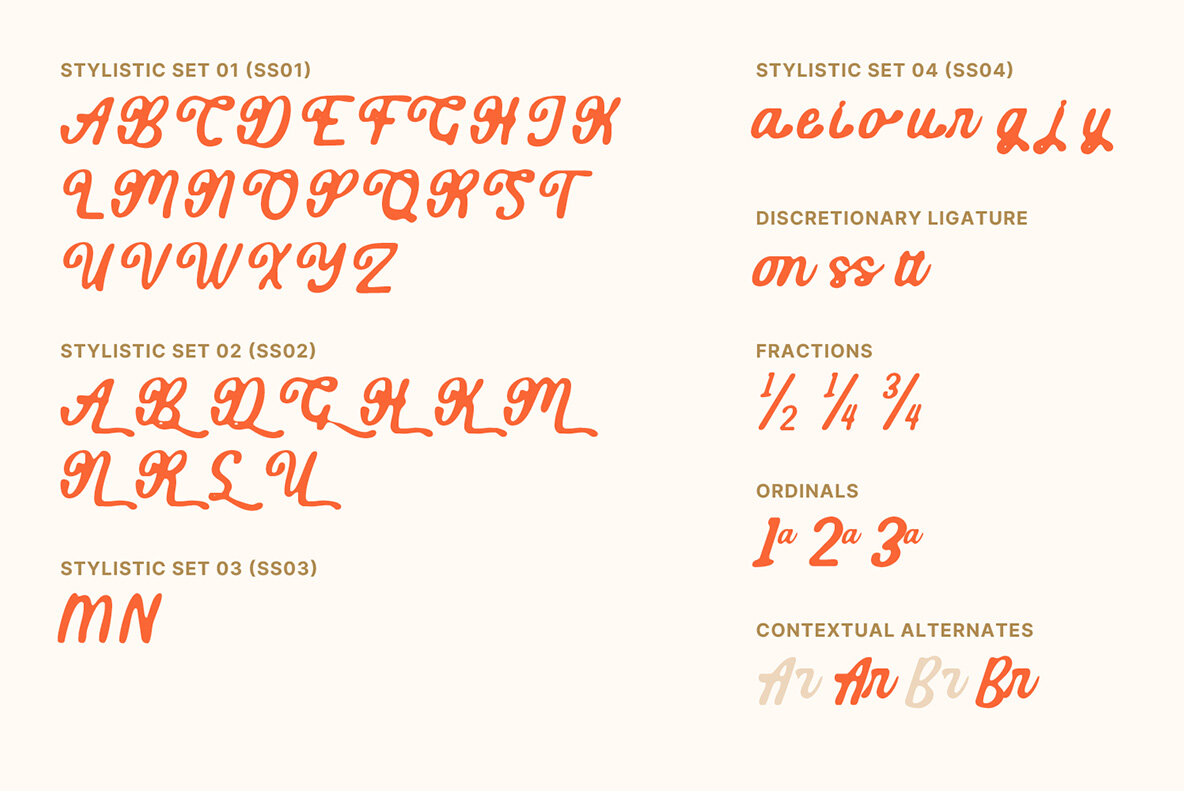 STYLISTIC SET 01 (SS01)
A B C D E F G H I K
L M N O P Q R S T
U V W X Y Z
STYLISTIC SET 02 (SS02)
A B D G H K M
N R L U
STYLISTIC SET 03 (SS03)
M N
STYLISTIC SET 04 (SS04)
a e i o u r g j y
DISCRETIONARY LIGATURE
on ss tt
FRACTIONS
1/2 1/4 3/4
ORDINALS
1ª 2ª 3ª
CONTEXTUAL ALTERNATES
Ar Ar Br Br